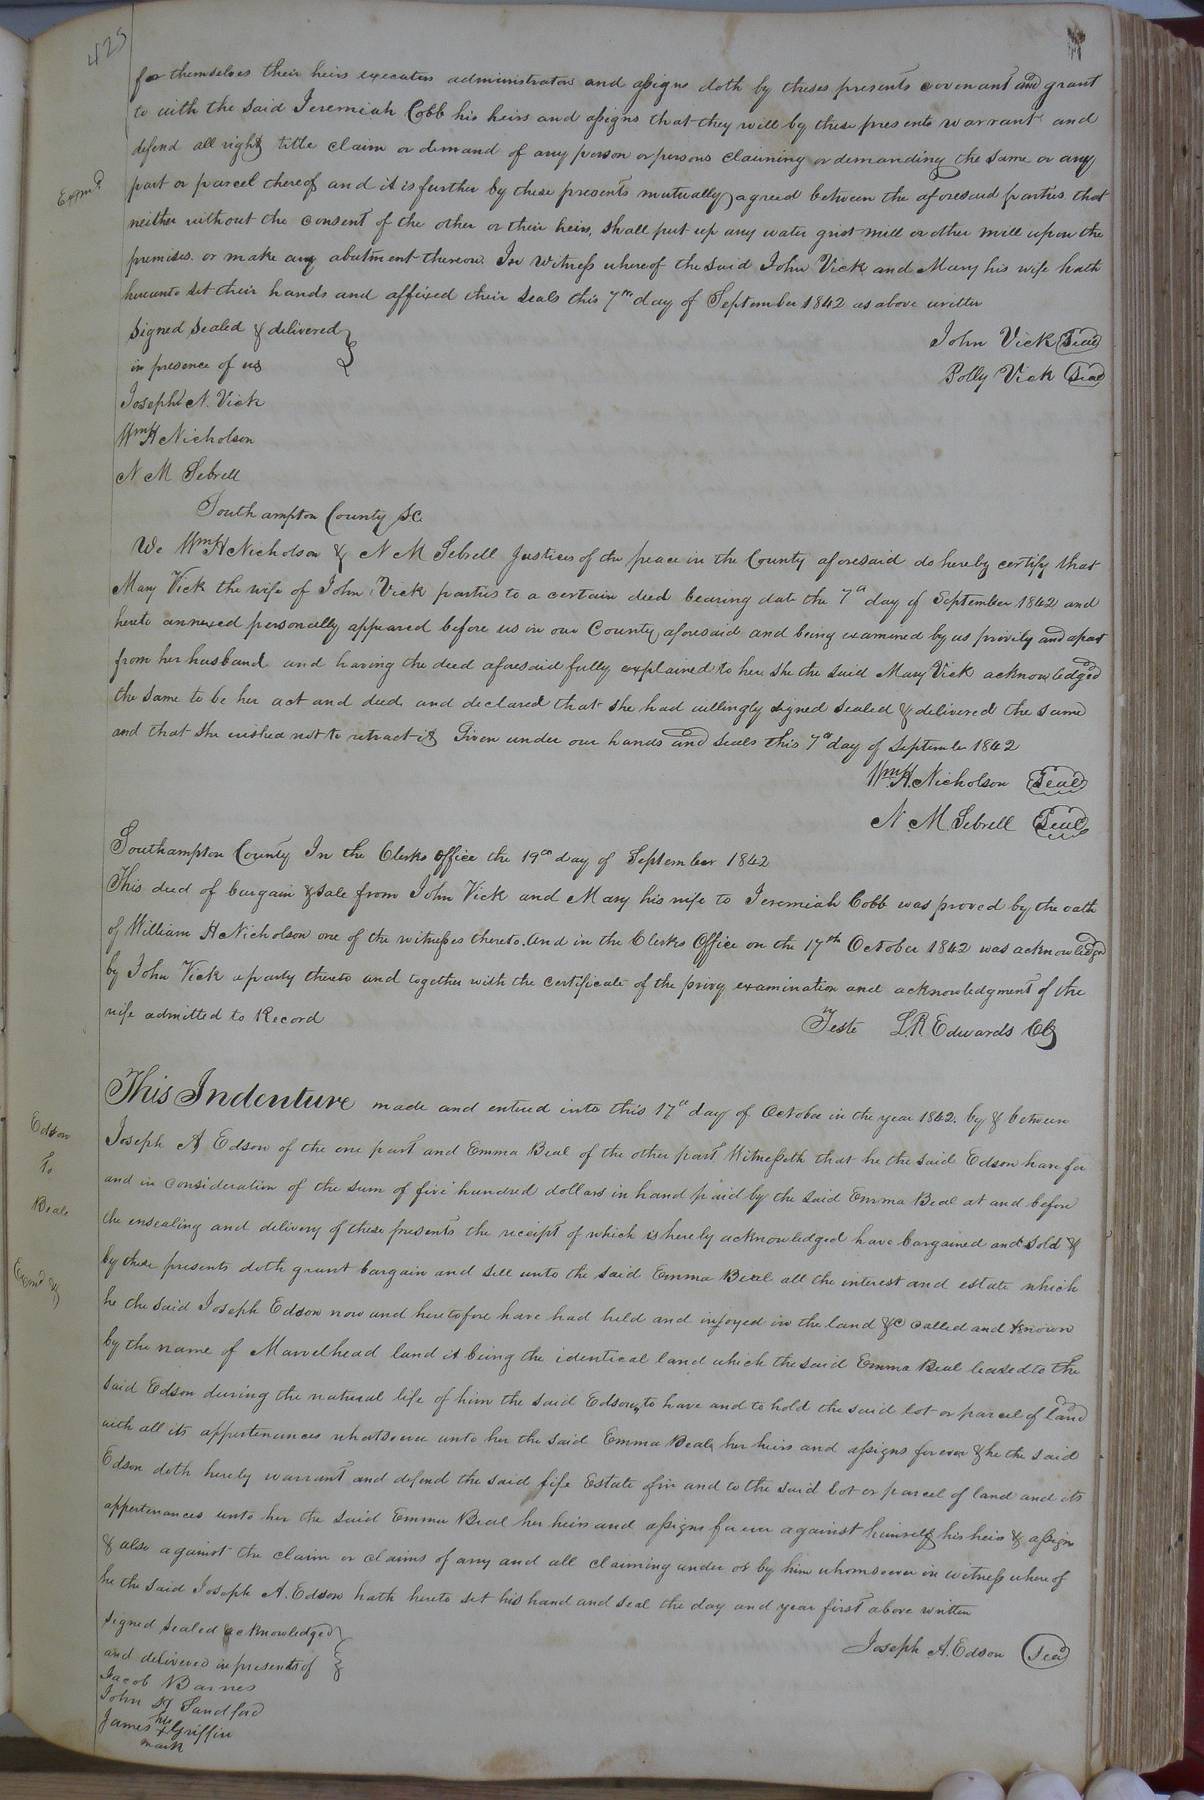 425
for themselves their heirs executors administrators and assigns doth by theses presents covenant and grant
to with the said Jeremiah Cobb his heirs and assigns that they will by these presents warrant and
defend all right title claim or demand of any person or persons claiming or demanding the same or any
Exmd
part or parcel thereof and it is further by these presents mutually agreed between the aforesaid parties that
neither without the consent of the other or their heirs, shall put up any water grist mill or other mill upon the
premises. or make any abutment thereon. In Witness whereof the said John Vick and Mary his wife hath
hereunto set their hands and affixed their seals this 7th day of September 1842 as above written
Signed Sealed & delivered
in presence of us
John Vick Seal
Polly Vick Seal
Joseph N. Vick
Wm H Nicholson
N M Sebrell
Southampton County Sc.
We Wm H Nicholson & N M Sebrell Justices of the peace in the County aforesaid do hereby certify that
Mary Vick the wife of John Vick parties to a certain deed bearing date the 7th day of September 1842 and
hereto annexed personally appeared before us in our County aforesaid and being examined by us privily and apart
from her husband and having the deed aforesaid fully explained to her she the said Mary Vick acknowledged
the same to be her act and deed, and declared that she had willingly signed sealed & delivered the same
and that she wished not to retract it Given under our hands and seals this 7th day of September 1842
Wm H. Nicholson Seal
N. M Sebrell Seal
Southampton County In the Clerks office the 19th day of September 1842
This deed of bargain & sale from John Vick and Mary his wife to Jeremiah Cobb was proved by the oath
of William H Nicholson one of the witnesses thereto. And in the Clerks Office on the 17th October 1842 was acknowledged
by John Vick a party thereto and together with the certificate of the privy examination and acknowledgment of the
wife admitted to Record
Teste L.R Edwards Clk
This Indenture made and entered into this 17th day of October in the year 1842. by & between
Edson
To
Beale
Joseph A Edson of the one part and Emma Beal of the other part Witnesseth that he the said Edson have for
and in consideration of the sum of five hundred dollars in hand paid by the said Emma Beal at and before
the ensealing and delivery of these presents the receipt of which is hereby acknowledged have bargained and sold &
Exmd
by these presents doth grant bargain and sell unto the said Emma Beal all the interest and estate which
he the said Joseph Edson now and heretofore have had held and injoyed in the land &c called and known
by the name of Marvelhead land it being the identical land which the said Emma Beal leased to the
said Edson during the natural life of him the said Edson, to have and to hold the said lot or parcel of land
with all its appertenances whatsoever unto her the said Emma Beale her heirs and assigns forever & he the said
Edson doth hereby warrant and defend the said life Estate of in and to the said Lot or parcel of land and its
appertenances unto her the said Emma Beal her heirs and assigns forever against himself his heirs & assigns
& also against the claim or claims of any and all claiming under or by him whomsoever in witness whereof
he the said Joseph A. Edson hath hereto set his hand and seal the day and year first above written
Signed Sealed acknowledged
and delivered in presents of
Joseph A. Edson Seal
Jacob Barnes
John Sandford
James his x mark Griffin